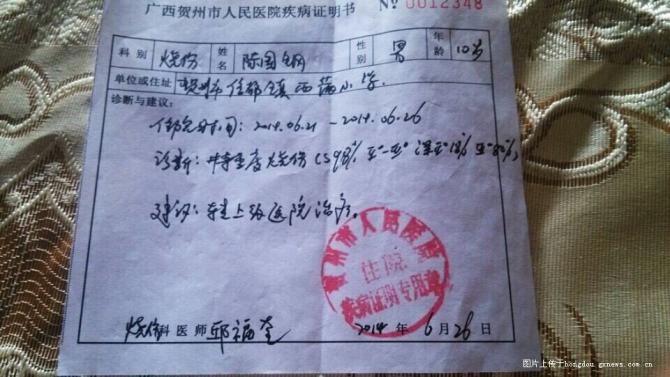 广西贺州市人民医院疾病证明书 № 0012348
科别 烧伤 姓名 陈国钢 性别 男 年龄 10岁
单位或住址 贺州市信都镇西茹小学.
诊断与建议:
住院时间: 2014.06.21 - 2014.06.26
诊断: 特重度烧伤 (98%
建议: 转上级医院治疗。
贺州市人民医院
住院
疾病证明专用章
烧伤科医师 邱福奎
2014年6月26日
图片上传于hongdou.gxnews.com.cn